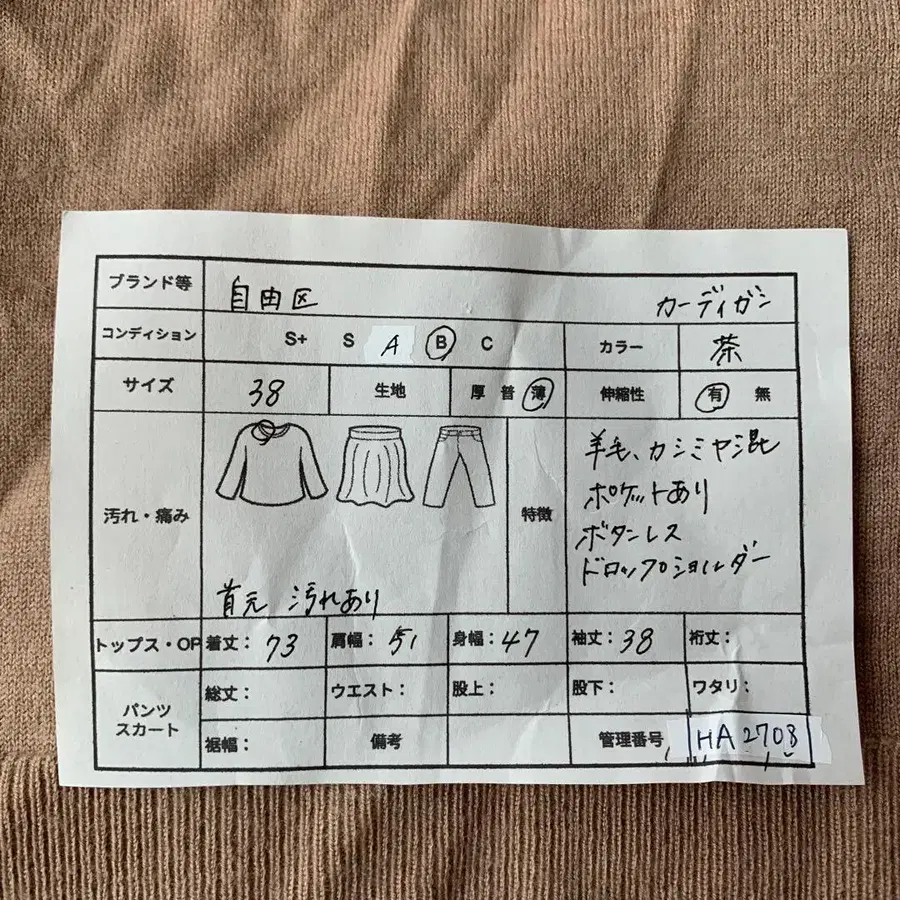 ブランド等 自由区 カーディガン
コンディション S+ S A B C カラー 茶
サイズ 38 生地 厚 普 薄 伸縮性 有 無
汚れ・痛み 首元 汚れあり
特徴 羊毛、カシミヤ混
ポケットあり
ボタンレス
ドロップショルダー
トップス・OP 着丈: 73 肩幅: 51 身幅: 47 袖丈: 38 裄丈:
パンツ
スカート
総丈: ウエスト: 股上: 股下: ワタリ:
裾幅: 備考 管理番号 HA2708